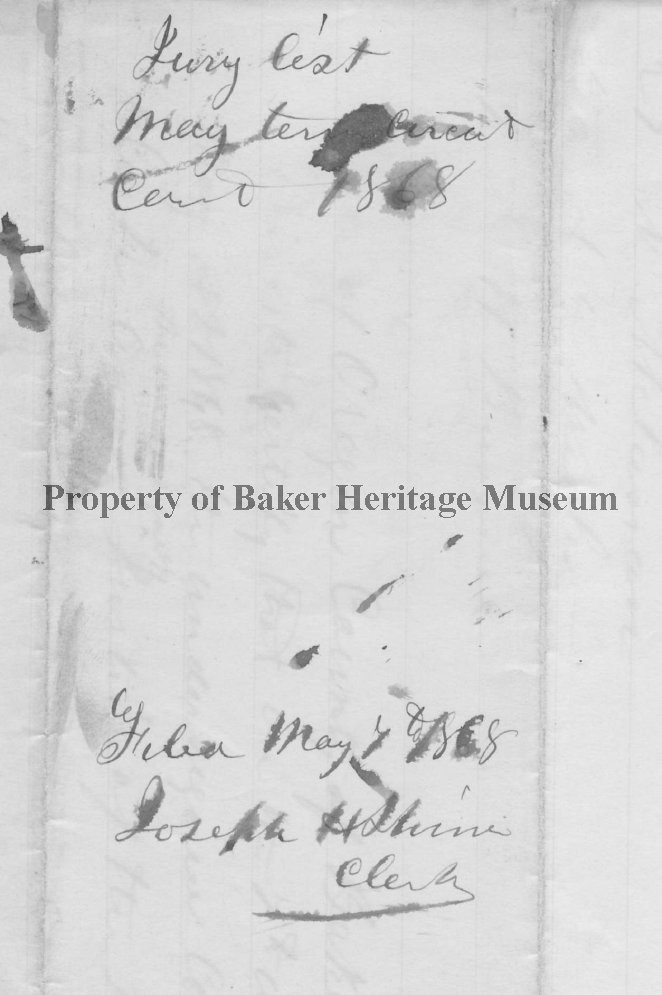 Jury list
May term Circuit
Court 1868
Property of Baker Heritage Museum
Filed May 7th 1868
Joseph H Shinn
Clerk